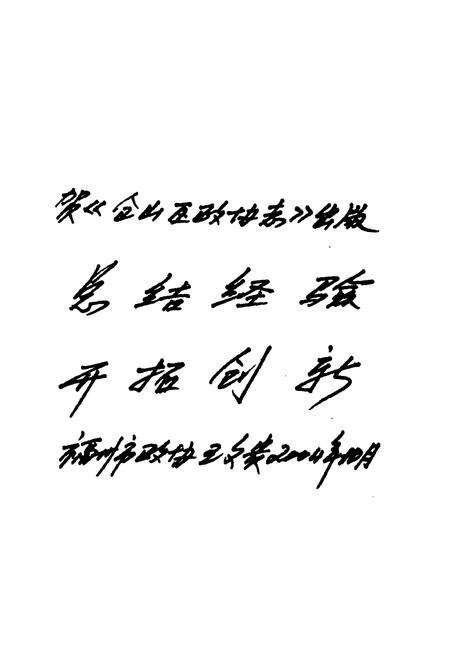 贺《仓山区政协志》出版
总结经验
开拓创新
福州市政协王文贵2004年10月